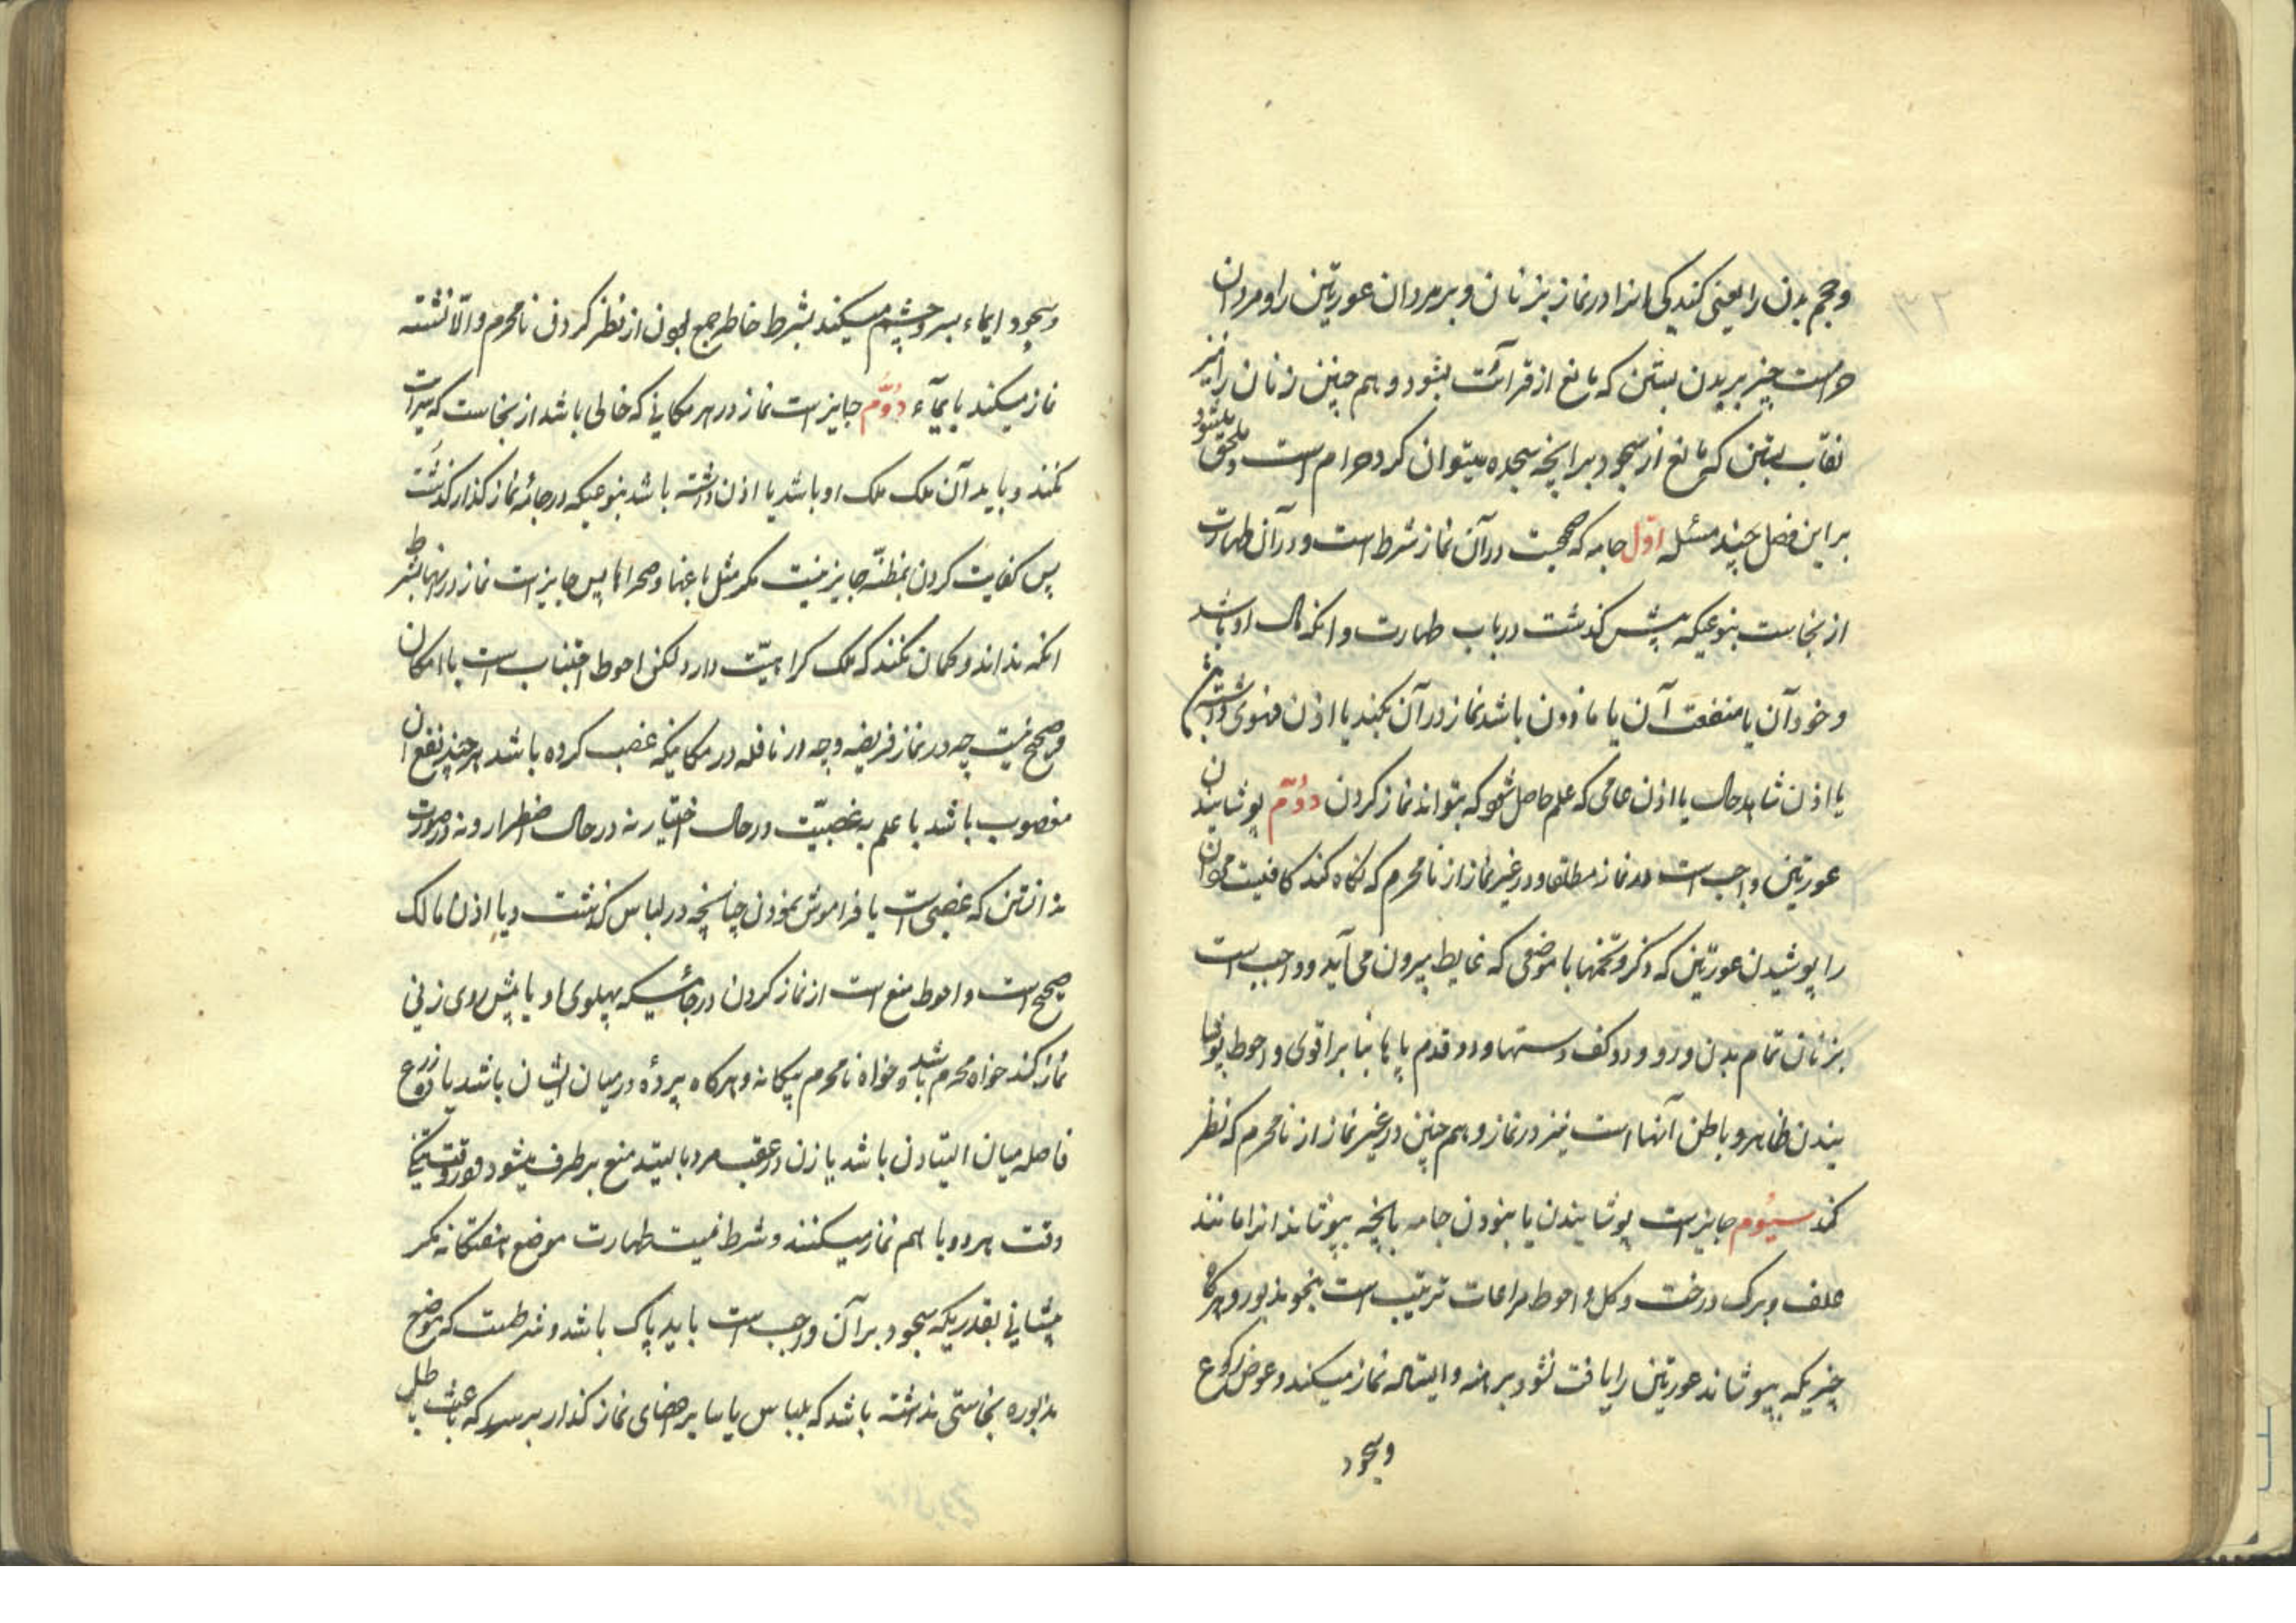 وحجم بدن را یعنی کندکی انرا در نماز بزنان و بر مردان عورتین را و مردان
حرامست چیز بر بدن بستن که مانع از قرائت بشود و هم چنین زنان را نیز
نقاب بستن که مانع از سجود برانچه سجده میتوان کرد حرام است و ملحق میشود
براین فصل چند مسئله اوّل جامه که صحت در آن نماز شرط است و در آن طهارت
از نجاست بنوعیکه پیش گذشت در باب طهارت و انکه مال او باشد
و خود آن یا منفعت آن یا ماذون باشد نماز در آن بکند یا اذن فحوی داشته باشد
یا اذن شاهد حال یا اذن عامی که علم حاصل شود که بتواند نماز کردن دوّم پوشانیدن
عورتین واجب است در نماز مطلقا و در غیر نماز از نامحرم که نکاه کند کافیست مردان
را پوشیدن عورتین که ذکر و تخمها با موضعی که غایط بیرون می آید و واجب است
بزنان تمام بدن و رو و دو کف دستها و دو قدم پاها بنا بر اقوی و احوط پوشا
نیدن ظاهر و باطن آنها است نیز در نماز و هم چنین در غیر نماز از نامحرم که نظر
کند سیوم جایز است پوشانیدن با نبودن جامه بانچه بپوشاند انرا مانند
علف و برک درخت و کل و احوط مراعات ترتیب است بنحو مذبور و هرکاه
چیزیکه بپوشاند عورتین را یافت نشود برهنه و ایستاده نماز میکند و عوض رکوع
وسجود
وسجود ایماء بسر و چشم میکند بشرط خاطر جمع بودن از نظر کردن نامحرم والّا نشسته
نماز میکند بایمآء دوّم جایز است نماز در هر مکانی که خالی باشد از نجاست که سرایت
نکند و باید آن ملک ملک او باشد یا اذن داشته باشد بنوعیکه در جامهٔ نماز کذار کذشت
پس کفایت کردن بمظنّه جایز نیست مکر مثل باغها و صحراها پس جایز است نماز در انها بشرط
انکه نداند و کمان نکند که ملک کراهیّت دارد لکن احوط اجتناب است با امکان
و صحیح نیست چه در نماز فریضه و چه در نافله در مکانیکه غصب کرده باشد هر چند نفع ان
مغصوب باشد با علم به غصبیّت در حال اختیار نه در حال اضطرار و نه در صورت
ندانستن که غصبی است یا فراموش نمودن چنانچه در لباس کذشت و با اذن مالک
صحیح است و احوط منع است از نماز کردن در جائیکه پهلوی او یا پیش روی زنی
نماز کند خواه محرم باشد و خواه نامحرم بیکانه و هرکاه پردهٔ در میان ایشان باشد یا ده ذرع
فاصله میان ایستادن باشد یا زن در عقب مرد بایستد منع بر طرف میشود و در وقت تنکی
وقت هر دو با هم نماز میکنند و شرط نیست طهارت موضع هفتکانه مکر
پیشانی بقدریکه سجود بر آن واجب است باید پاک باشد و شرطست که موضع
مذبوره نجاستی نداشته باشد که بلباس یا سایر اعضای نماز کذار برسد که باعث باطل